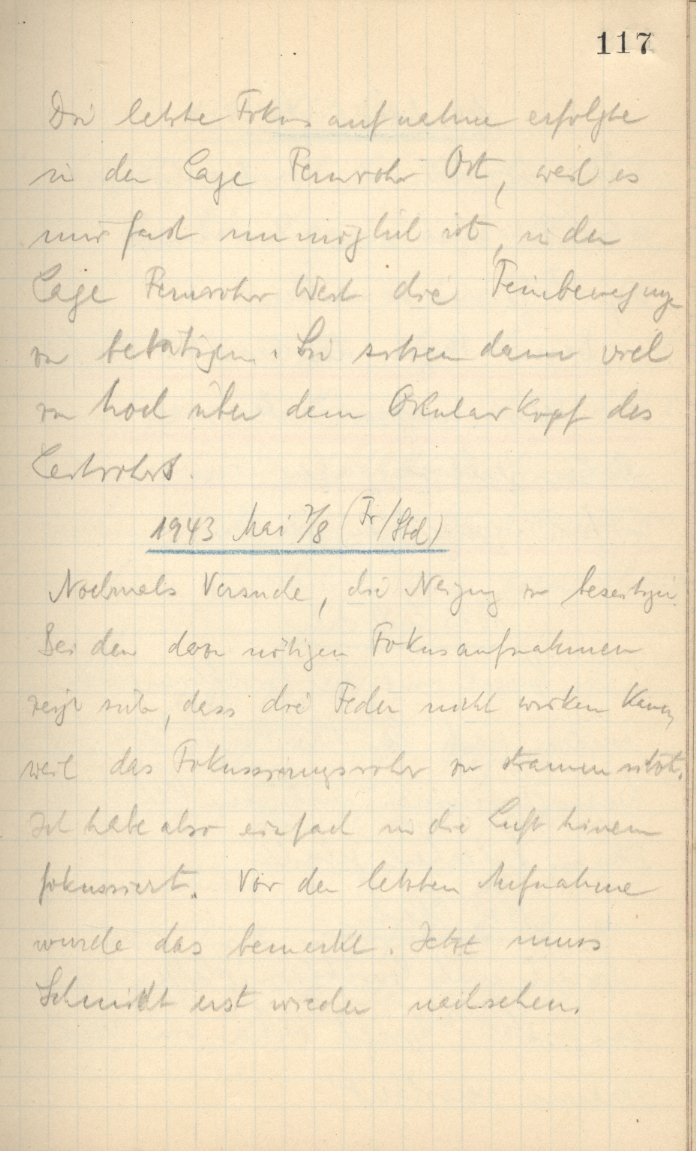 117
Die letzte Fokusaufnahme erfolgte
in der Lage Fernrohr Ost, weil es
mir fast unmöglich ist, in der
Lage Fernrohr West die Feinbewegung
zu betätigen. Sie sitzen dann viel
zu hoch über dem Okularkopf des
Leitrohrs.
1943 Mai 7/8 (Fr/Std)
Nochmals Versuche, die Neigung zu beseitigen.
Bei den dazu nötigen Fokusaufnahmen
zeigt sich, dass die Feder nicht wirken kann,
weil das Fokussierungsrohr zu stramm sitzt.
Ich habe also einfach in die Luft hinein
fokussiert. Vor der letzten Aufnahme
wurde das bemerkt. Jetzt muss
Schmidt erst wieder nachsehen.